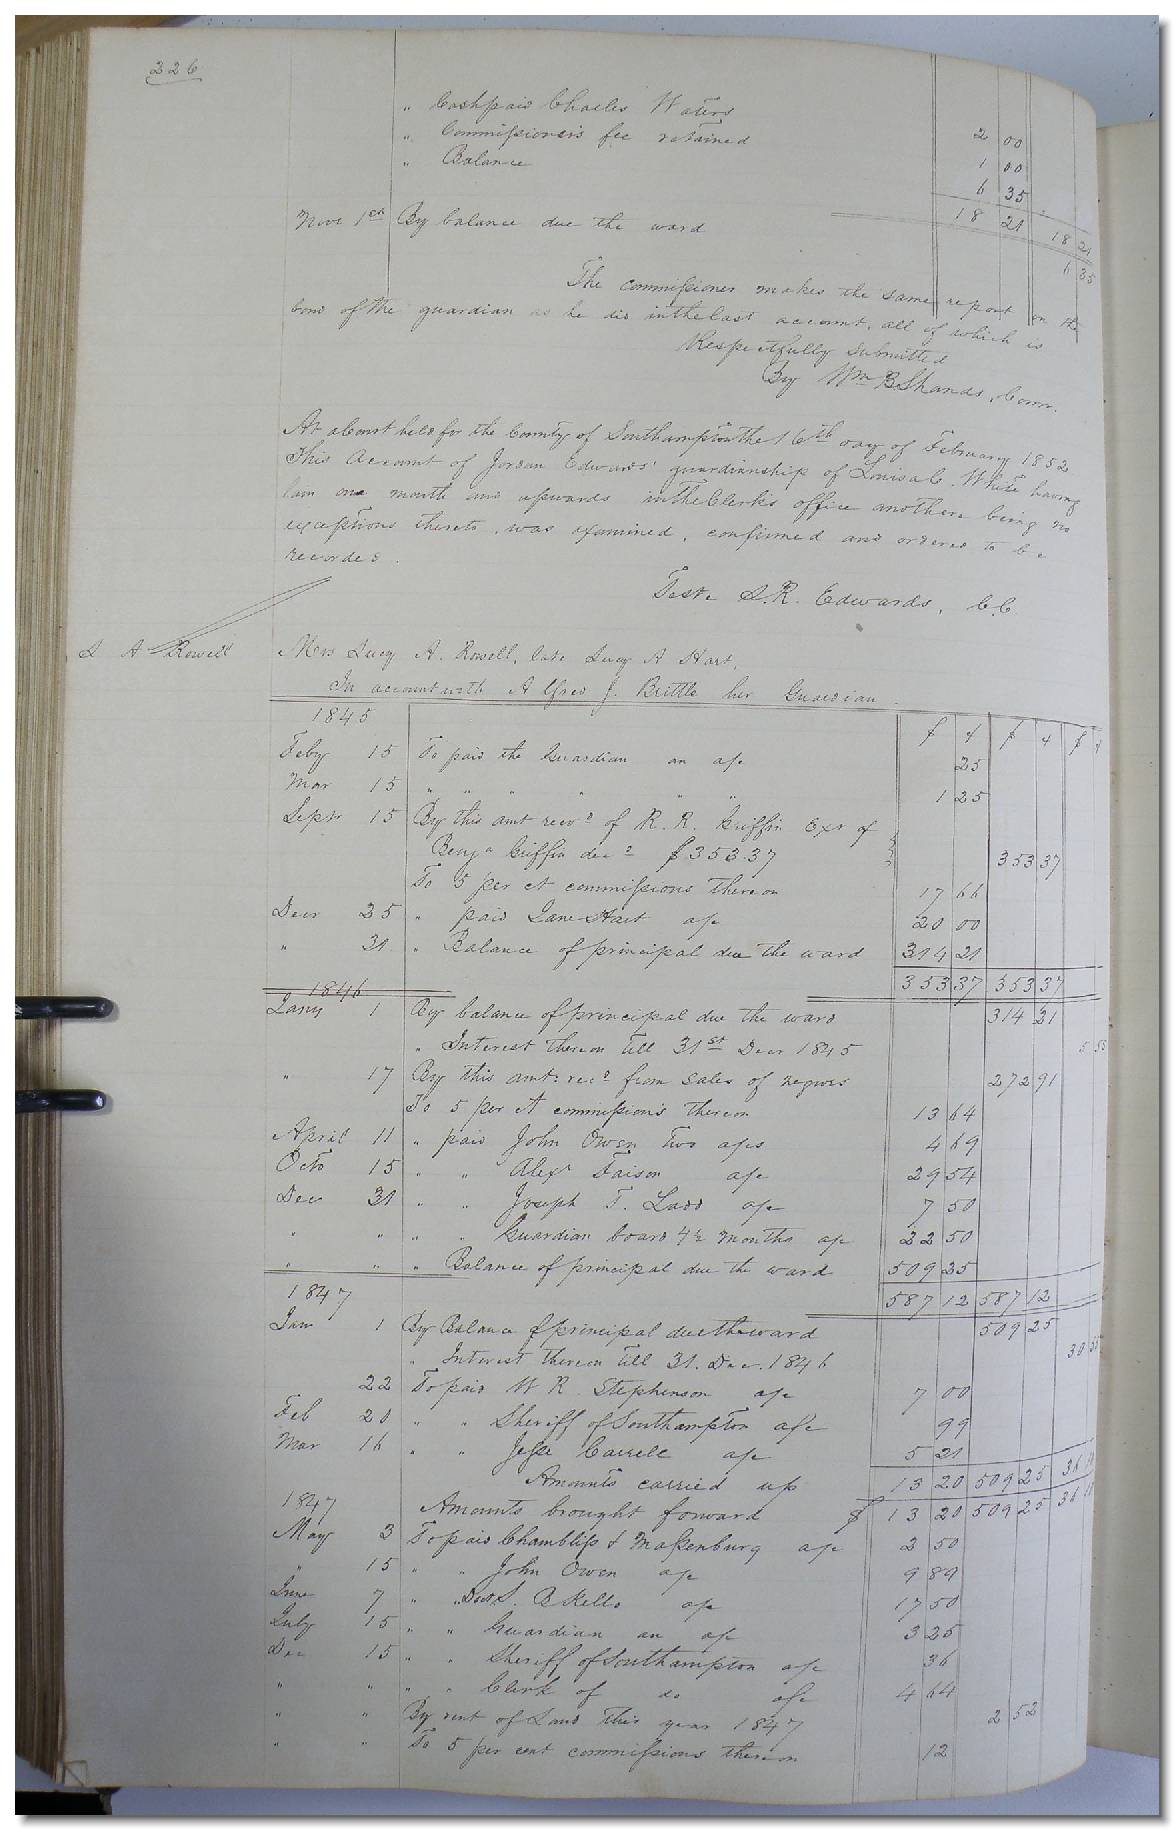 326
" Cash paid Charles Waters 2 00
" Commissioner's fee retained 1 00
" Balance 6 35
18 21 18 21
Nove 1st By balance due the ward 6 35
The commissioner makes the same report on the
bond of the guardian as he did in the last account, all of which is
Respectfully submitted
By Wm B Shands, Com.
At a Court held for the County of Southampton the 16th day of February 1852
This Account of Jordan Edwards' guardianship of Louisa C. White having
lain one month and upwards in the Clerk's office and there being no
exceptions thereto, was examined, confirmed and ordered to be
recorded.
Teste L.R. Edwards, C.C
L A Rowell Mrs Lucy A. Rowell, late Lucy A Hart,
In account with Alfred J. Brittle her Guardian
1845 $ ¢ $ ¢ $ ¢
Feby 15 To paid the Guardian an a/c 25
Mar 15 " " " " " " 1 25
Septr 15 By this amt recvd of R. R. Griffin Exr of
Benja Griffin decd $353.37 353 37
To 5 per ct commissions thereon 17 66
Decr 25 " paid Jane Hart a/c 20 00
" 31 " Balance of principal due the ward 314 21
353 37 353 37
1846
Jany 1 By balance of principal due the ward 314 21
" Interest thereon till 31st Decr 1845 5 55
" 17 By this amt recd from sales of negroes 272 91
To 5 per ct commissions thereon 13 64
April 11 " paid John Owen two a/cs 4 69
Octo 15 " " Alexr Faison a/c 29 54
Dec 31 " " Joseph T. Ladd a/c 7 50
" " " " Guardian board 4½ months a/c 22 50
" " " Balance of principal due the ward 509 25
587 12 587 12
1847
Jan 1 By Balance of principal due the ward 509 25
" Interest thereon till 31. Decr. 1846 30
22 To paid W R. Stephenson a/c 7 00
Feb 20 " " Sheriff of Southampton a/c 99
Mar 16 " " Jesse Carrell a/c 5 21
Amounts carried up 13 20 509 25 36
1847 Amounts brought forward $ 13 20 509 25 36
May 3 To paid Chambliss & Massenburg a/c 2 50
" 15 " " John Owen a/c 9 89
June 7 " " Doct. S. B Kello a/c 17 50
July 15 " " Guardian an a/c 3 25
Dec 15 " " Sheriff of Southampton a/c 36
" " " " Clerk of do a/c 4 64
" " By rent of Land this year 1847 2 52
" " To 5 per cent commissions thereon 12